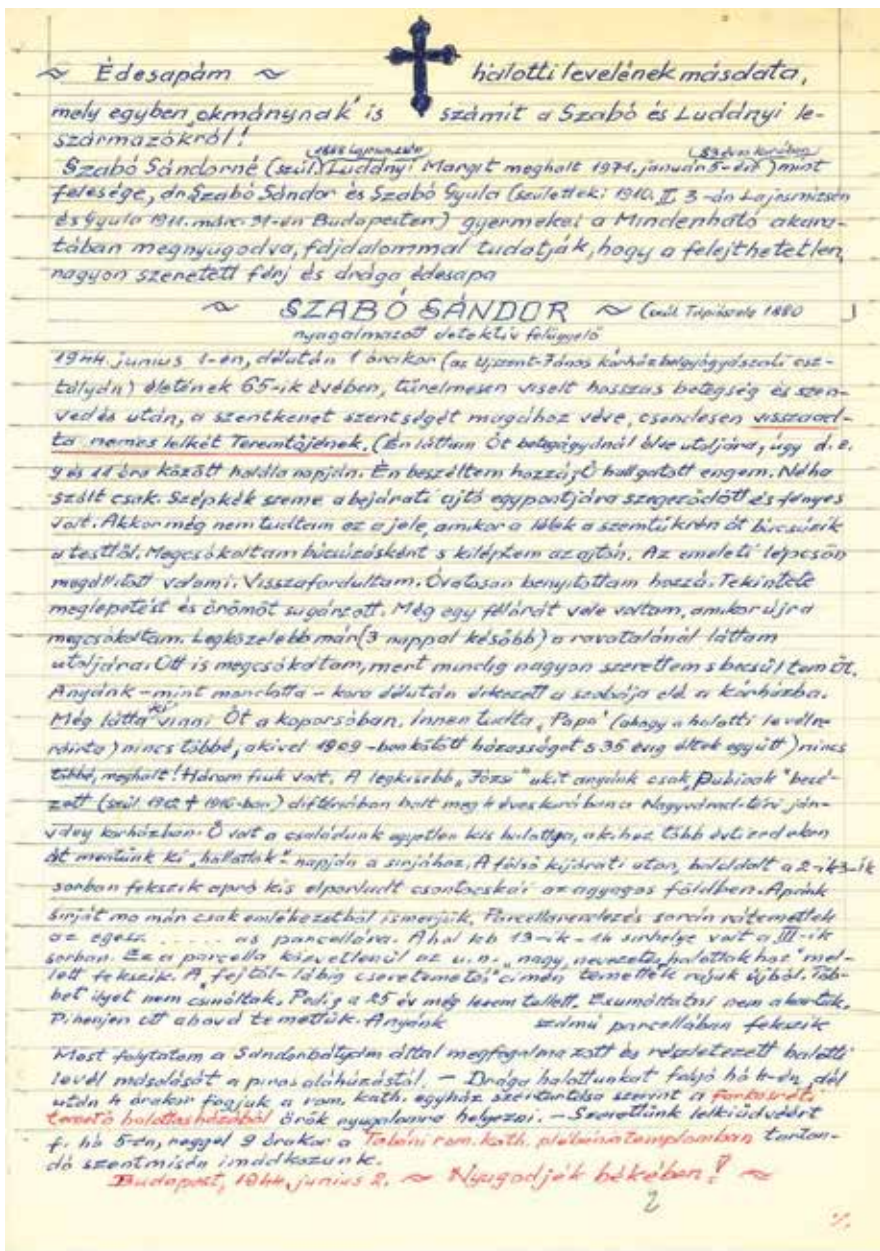 ~ Édesapám ~ halotti levelének másolata,
mely egyben „okmánynak” is számít a Szabó és Luddnyi le-
származókról!
1888 Lajosmizsén 83 éves korában
Szabó Sándorné (szül. Luddnyi Margit meghalt 1971. január 5-én) mint
felesége, dr. Szabó Sándor és Szabó Gyula (születtek: 1910. II. 3-án Lajosmizsén
és Gyula 1911. márc. 31-én Budapesten) gyermekei a Mindenható akara-
tában megnyugodva, fájdalommal tudatják, hogy a felejthetetlen,
nagyon szeretett férj és drága édesapa
~ SZABÓ SÁNDOR ~ (szül. Tápiószele 1880
nyugalmazott detektív felügyelő
1944. junius 1-én, délután 1 órakor (az Ujszent-János kórház belgyógyászati osz-
tályán) életének 65-ik évében, türelmesen viselt hosszas betegség és szen-
vedés után, a szentkenet szentségét magához véve, csendesen visszaad-
ta nemes lelkét Teremtőjének. (Én láttam Őt betegágyánál élve utoljára, úgy d.e.
9 és 11 óra között halála napján. Én beszéltem hozzá, Ő hallgatott engem. Néha
szólt csak. Szép kék szeme a bejárati ajtó egy pontjára szegeződött és fényes
volt. Akkor még nem tudtam ez a jele, amikor a lélek a szemtükrén át búcsúzik
a testtől. Megcsókoltam búcsúzásként s kiléptem az ajtón. Az emeleti lépcsőn
megállított valami. Visszafordultam. Óvatosan benyitottam hozzá. Tekintete
meglepetést és örömöt sugárzott. Még egy félórát vele voltam, amikor újra
megcsókoltam. Legközelebb már (3 nappal később) a ravatalánál láttam
utoljára. Ott is megcsókoltam, mert mindig nagyon szerettem s becsültem Őt.
Anyánk – mint mondotta – kora délután érkezett a szobája elé a kórházba.
Még látta ki vinni Őt a koporsóban. Innen tudta, „Papa” (ahogy a halotti levélre
ráírta) nincs többé, akivel 1909-ben kötött házasságot s 35 évig éltek együtt) nincs
többé, meghalt! Három fiuk volt. A legkisebb „Józsi” akit anyánk csak „Pubinak” becé-
zett (szül. † 1916-ban) diftériában halt meg 4 éves korában a Nagyvárad-téri
kórházban. Ő volt a családunk egyetlen kis halottja, akihez több évtizedeken
át mentünk ki „halottak” napján a sírjához. A felső kijárati uton, baloldalt a 2-ik 3-ik
sorban fekszik apró kis elporladt csontocskái az agyagos földben. Apránk
sirját ma már csak emlékezetből ismerjük. Parcellarendezés során rátemettek
az egész ..... as parcellára. Ahol kb 13-ik – 14 sirhelye volt a III-ik
sorban. Ez a parcella közvetlenül az u.n. „nagy, nevezetes halottakhoz” mel-
lett fekszik. A „fejtől-lábig cseretemetés” címén temettek rájuk újból. Töb-
bet ilyet nem csináltak. Pedig a 25 év még le sem tellett. Exumáltatni nem akartuk.
Pihenjen ott ahová temettük. Anyánk számú parcellában fekszik
Most folytatom a Sándorbátyám által megfogalmazott és részletezett halotti
levél másolását a piros aláhúzástól. – Drága halottunkat folyó hó 4-én, dél
után 4 órakor fogjuk a rom. kath. egyház szertartása szerint a farkasréti
temető halottasházából örök nyugalomra helyezni. – Szerettünk lelkiüdvéért
f. hó 5-én, reggel 9 órakor a Tabáni rom. kath. plébániatemplomban tartan-
dó szentmisén imádkozunk.
Budapest, 1944. junius 2. ~ Nyugodjék békében! ~
2